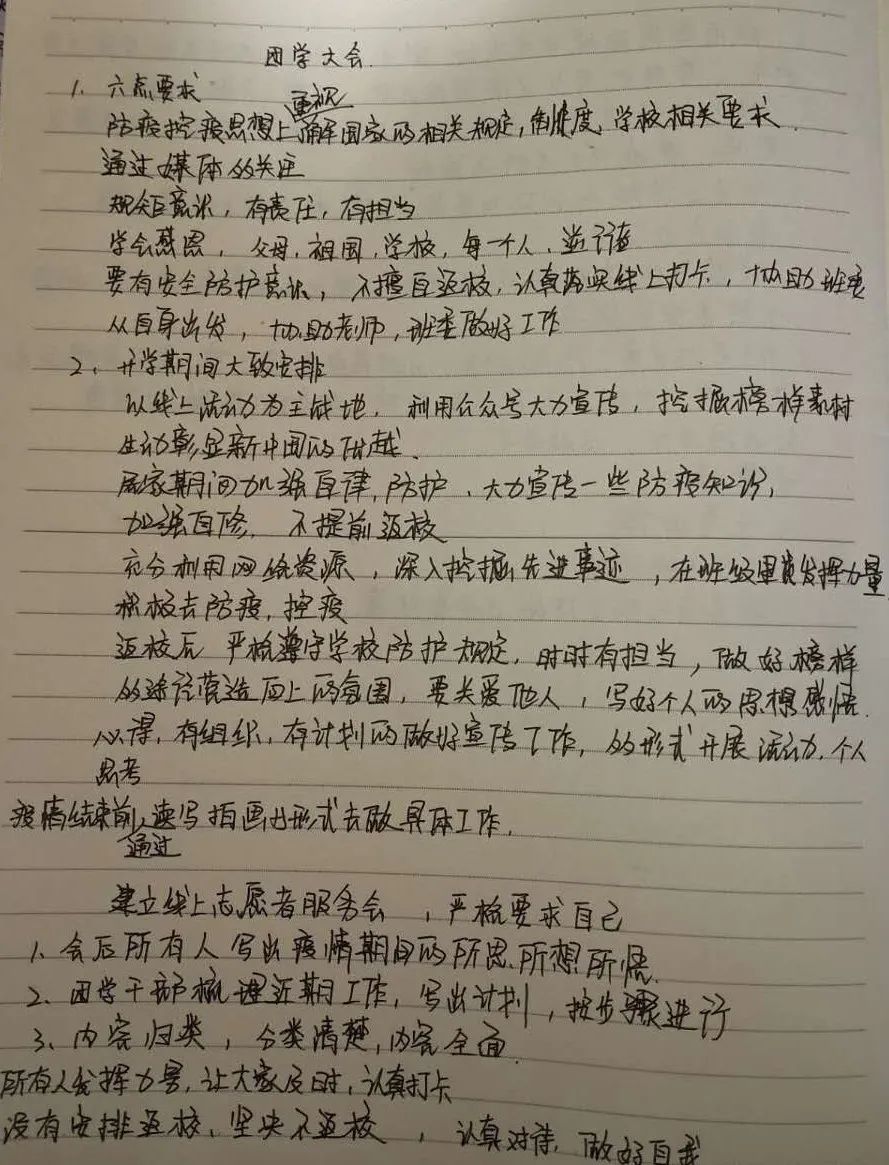 团学大会.
1. 六点要求
重视
防疫控疫思想上 了解国家的相关规定,制度,学校相关要求.
通过媒体的关注
规矩意识,有责任,有担当
学会感恩,父母,祖国,学校,每一个人,
要有安全防护意识,不擅自返校,认真落实线上打卡,协助班委
从自身出发,协助老师,班委做好工作
2. 开学期间大致安排
以线上活动为主战地,利用公众号大力宣传,挖掘榜样素材
生动彰显新中国的
居家期间加强自律,防护、大力宣传一些防疫知识,
加强自修,不提前返校
充分利用网络资源,深入挖掘先进事迹,在班级里 发挥力量
积极去防疫,控疫
返校后 严格遵守学校防护规定,时时有担当,做好榜样
的途径营造向上的氛围,要关爱他人,写好个人的思想感悟.
心得,有组织,有计划的做好宣传工作,的形式开展活动.个人
思考
疫情结束前,读写拍画的形式去做具体工作.
通过
建立线上志愿者服务会,严格要求自己
1. 会后所有人写出疫情期间的所思、所想所悟.
2. 团学干部梳理近期工作,写出计划,按步骤进行
3、内容归类,分类清楚,内容全面.
所有人发挥力量,让大家及时,认真打卡
没有安排返校,坚决不返校,认真对待,做好自我